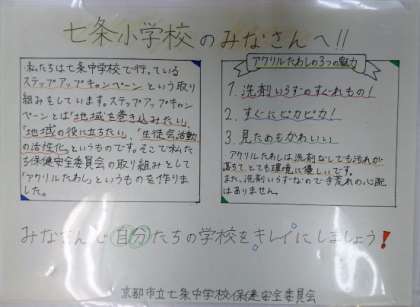 七条小学校のみなさんへ!!
私たちは七条中学校で行っている
ステップアップキャンペーンという取り
組みをしています。ステップアップキャン
ペーンとは「地域を巻き込みたい」
「地域の役に立ちたい」「生徒会活動
の活性化」というものです。そこで私た
ち保健安全委員会の取り組みとして
「アクリルたわし」というものを作りま
した。
アクリルたわしの3つの魅力
1.洗剤いらずのすぐれもの!
2.すぐにピカピカ!
3.見ためもかわいい
アクリルたわしは洗剤なしでも汚れが
落ちて、とても環境に優しいです。
また、洗剤いらずなので手荒れの心配
はありません。
みなさんで自分たちの学校をキレイにしましょう!
京都市立七条中学校保健安全委員会